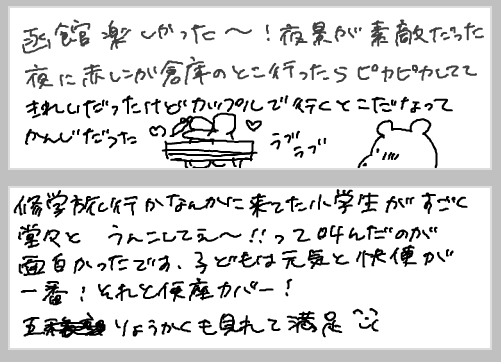 函館楽しかった〜!夜景が素敵だった
夜に赤レンガ倉庫のとこ行ったらピカピカしてて
きれいだったけどカップルで行くとこだなって
かんじだった
ラブ
ラブ
修学旅行かなんかに来てた小学生がすごく
堂々と うんこしてぇ〜!!って叫んだのが
面白かったです、子どもは元気と快便が
一番!それと便座カバー!
五稜郭りょうかくも見れて満足